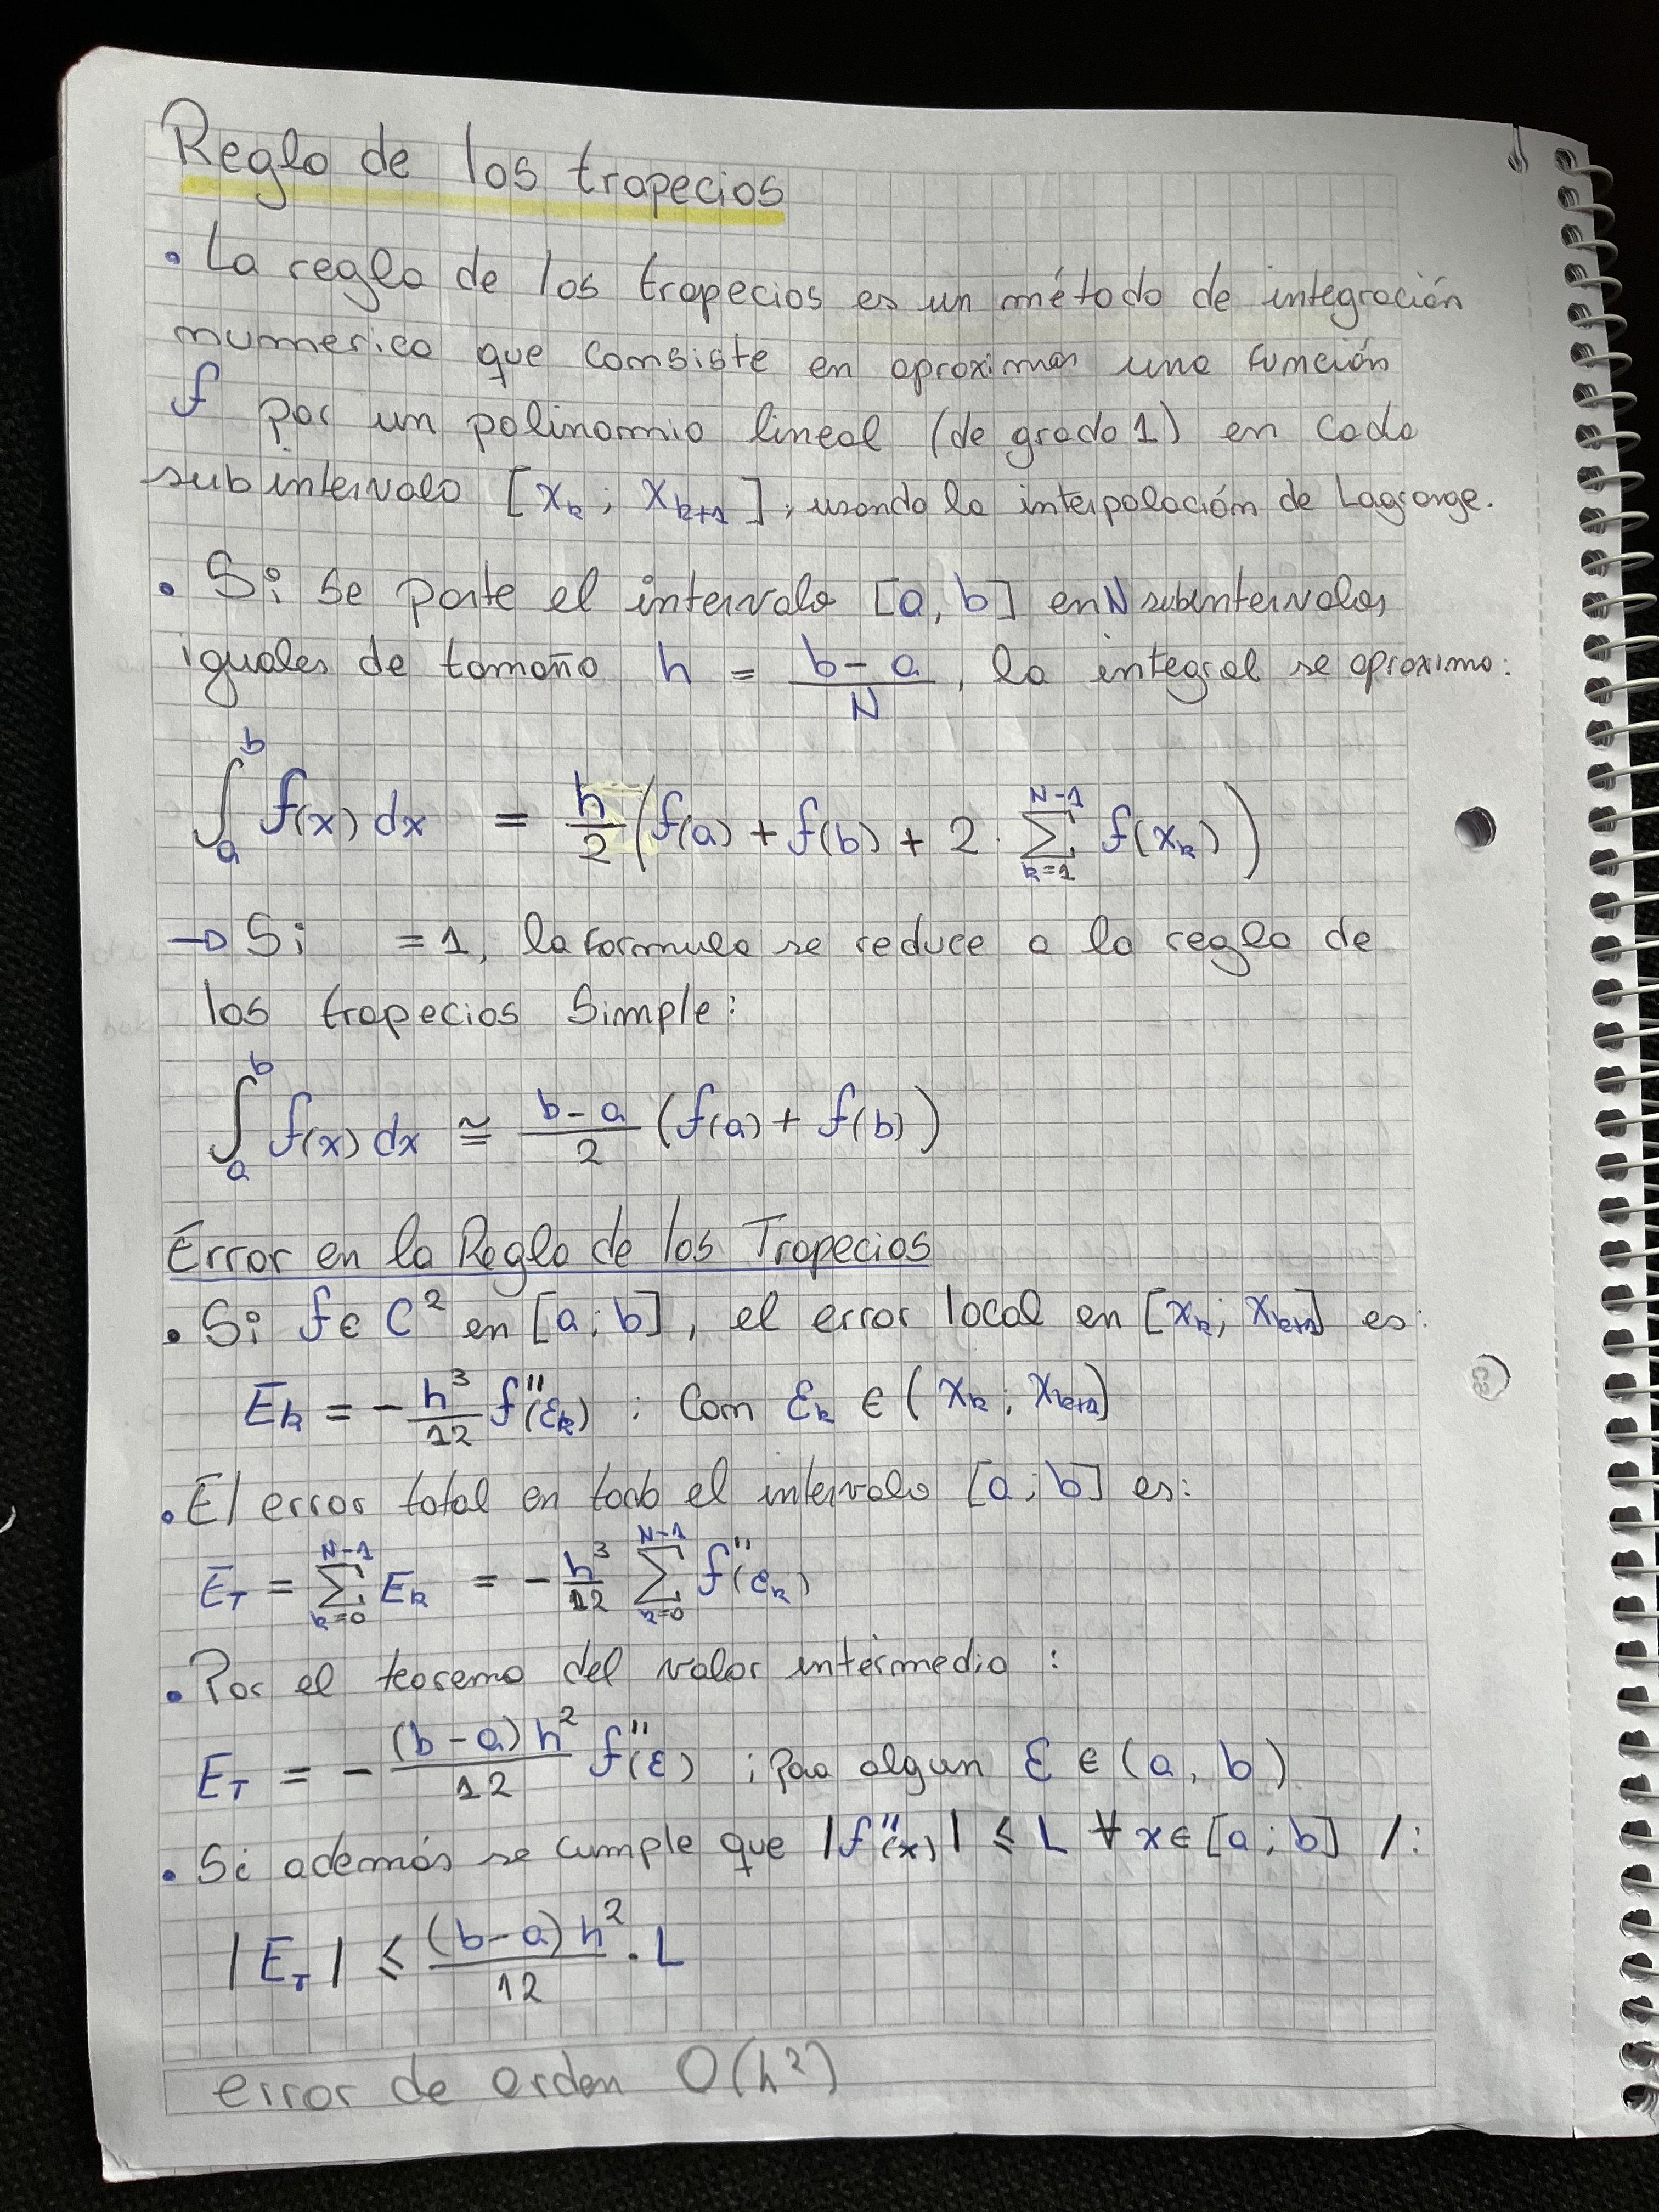 Regla de los trapecios
• La regla de los trapecios es un método de integración
numerica que consiste en aproximar una función
f por un polinomio lineal (de grado 1) en cada
subintervalo [x_k ; x_{k+1}], usando la interpolación de Lagrange.
• Si se parte el intervalo [a, b] en N subintervalos
iguales de tamaño h = (b - a)/N, la integral se aproxima:
∫_a^b f(x) dx = h/2 (f(a) + f(b) + 2 · ∑_{k=1}^{N-1} f(x_k))
→ Si = 1, la formula se reduce a la regla de
los trapecios simple:
∫_a^b f(x) dx ≅ (b - a)/2 (f(a) + f(b))
Error en la Regla de los Trapecios
• Si f ∈ C² en [a ; b], el error local en [x_k ; x_{k+1}] es:
E_k = - h³/12 f''(ε_k) ; Con ε_k ∈ (x_k ; x_{k+1})
• El error total en todo el intervalo [a ; b] es:
E_T = ∑_{k=0}^{N-1} E_k = - h³/12 ∑_{k=0}^{N-1} f''(ε_k)
• Por el teorema del valor intermedio :
E_T = - (b - a) h²/12 f''(ε) ; para algun ε ∈ (a, b)
• Si además se cumple que |f''(x)| ≤ L ∀ x ∈ [a ; b] /:
|E_T| ≤ (b - a) h²/12 · L
error de orden O(h²)